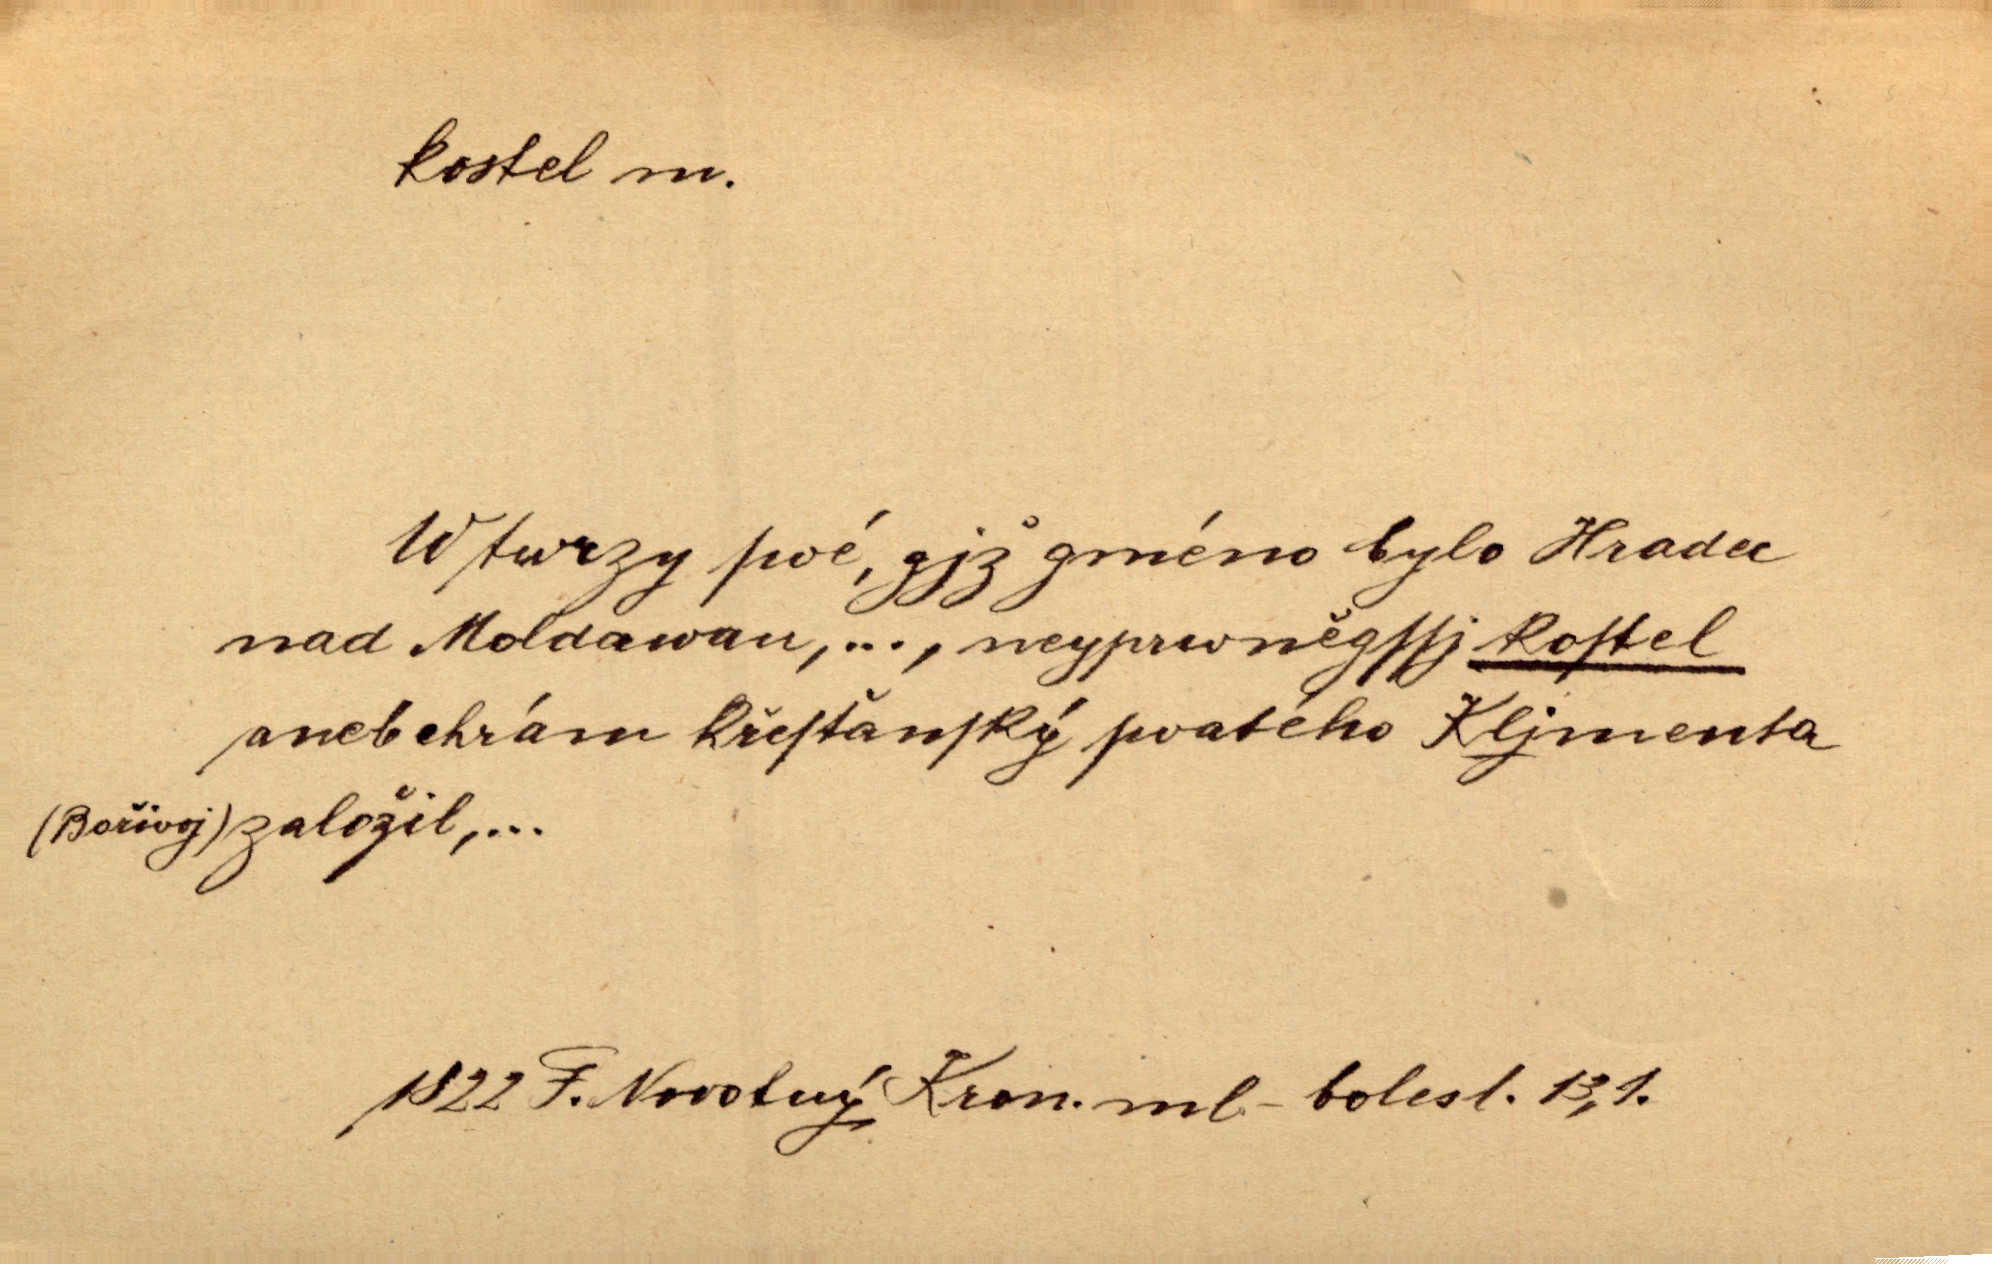 kostel m.
W twrzy ſvé, gjž gméno bylo Hradec
nad Moldawau,..., neyprwněgſſj koſtel
aneb chrám křeſťanſký ſvatého Kljmenta
(Bořivoj) založil,...
1822 F. Novotný Kron. ml-bolesl. 13,1.